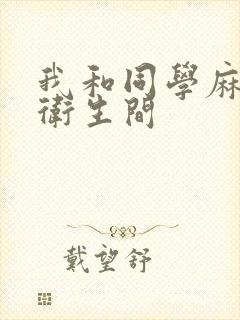 我和同學麻
衛生間
戴望舒